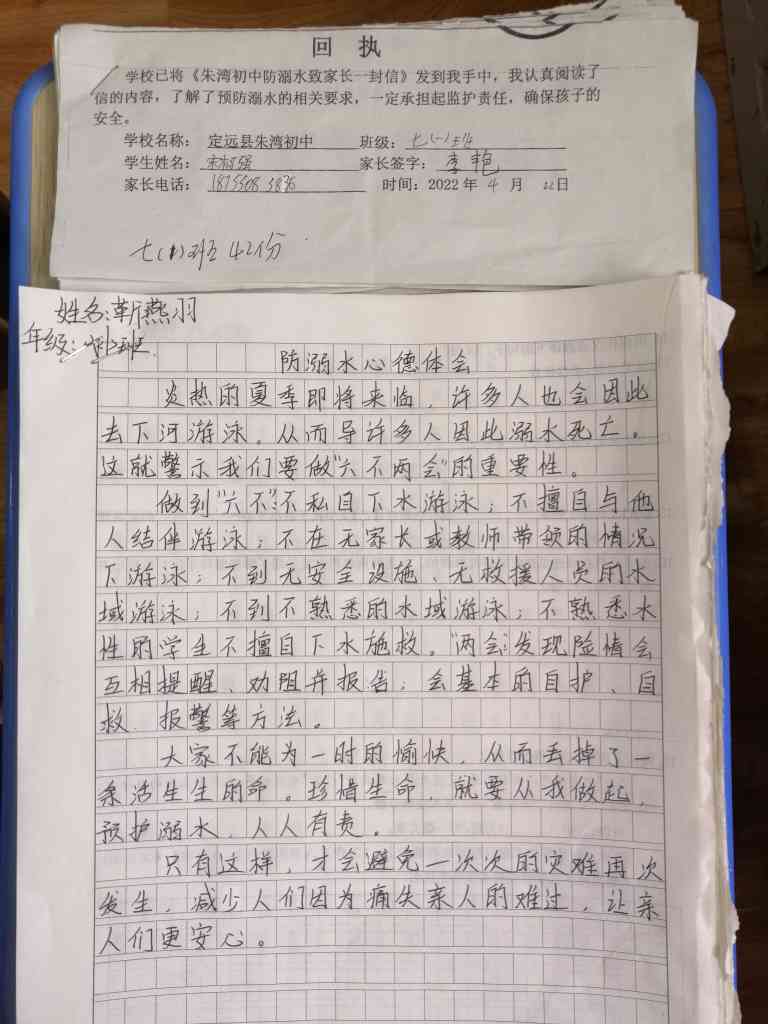 回 执
学校已将《朱湾初中防溺水致家长一封信》发到我手中，我认真阅读了
信的内容，了解了预防溺水的相关要求，一定承担起监护责任，确保孩子的
安全。
学校名称：定远县朱湾初中 班级：七(一)班
学生姓名： 家长签字：李艳
家长电话： 时间：2022年4月22日
七(1)班42份
姓名：靳燕羽
年级：
防溺水心德体会
炎热的夏季即将来临，许多人也会因此
去下河游泳。从而导许多人因此溺水死亡。
这就警示我们要做“六不两会”的重要性。
做到“六不”：不私自下水游泳；不擅自与他
人结伴游泳；不在无家长或教师带领的情况
下游泳；不到无安全设施、无救援人员的水
域游泳；不到不熟悉的水域游泳；不熟悉水
性的学生不擅自下水施救。“两会”发现险情会
互相提醒、劝阻并报告；会基本的自护、自
救、报警等方法。
大家不能为一时的愉快，从而丢掉了一
条活生生的命。珍惜生命，就要从我做起，
预护溺水，人人有责。
只有这样，才会避免一次次的灾难再次
发生，减少人们因为痛失亲人的难过，让亲
人们更安心。